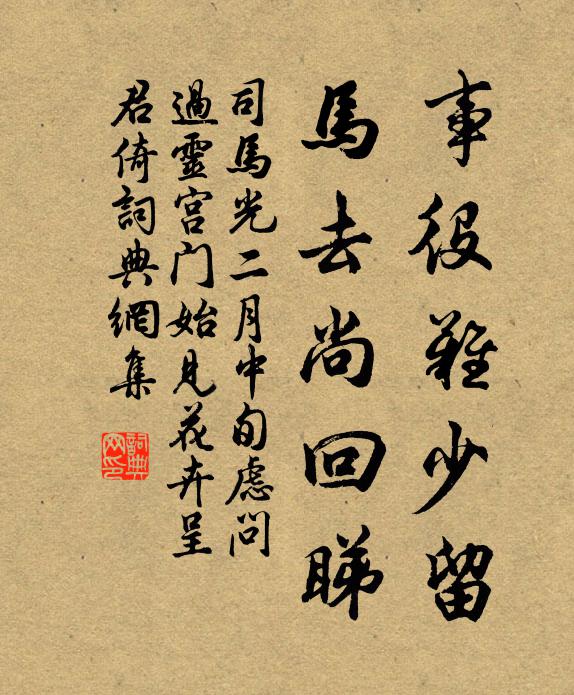 事役難少留
馬去尚回睇
司馬光二月中旬慮問
過靈宮门始見花卉呈
君倚詞典網集
詞典
网印